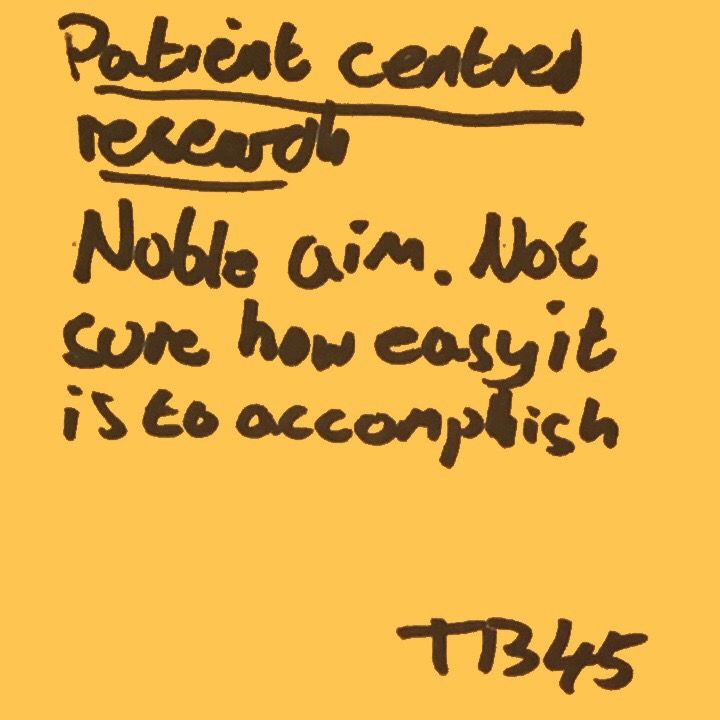 Patient centred
research
Noble aim. Not
sure how easy it
is to accomplish
TB45